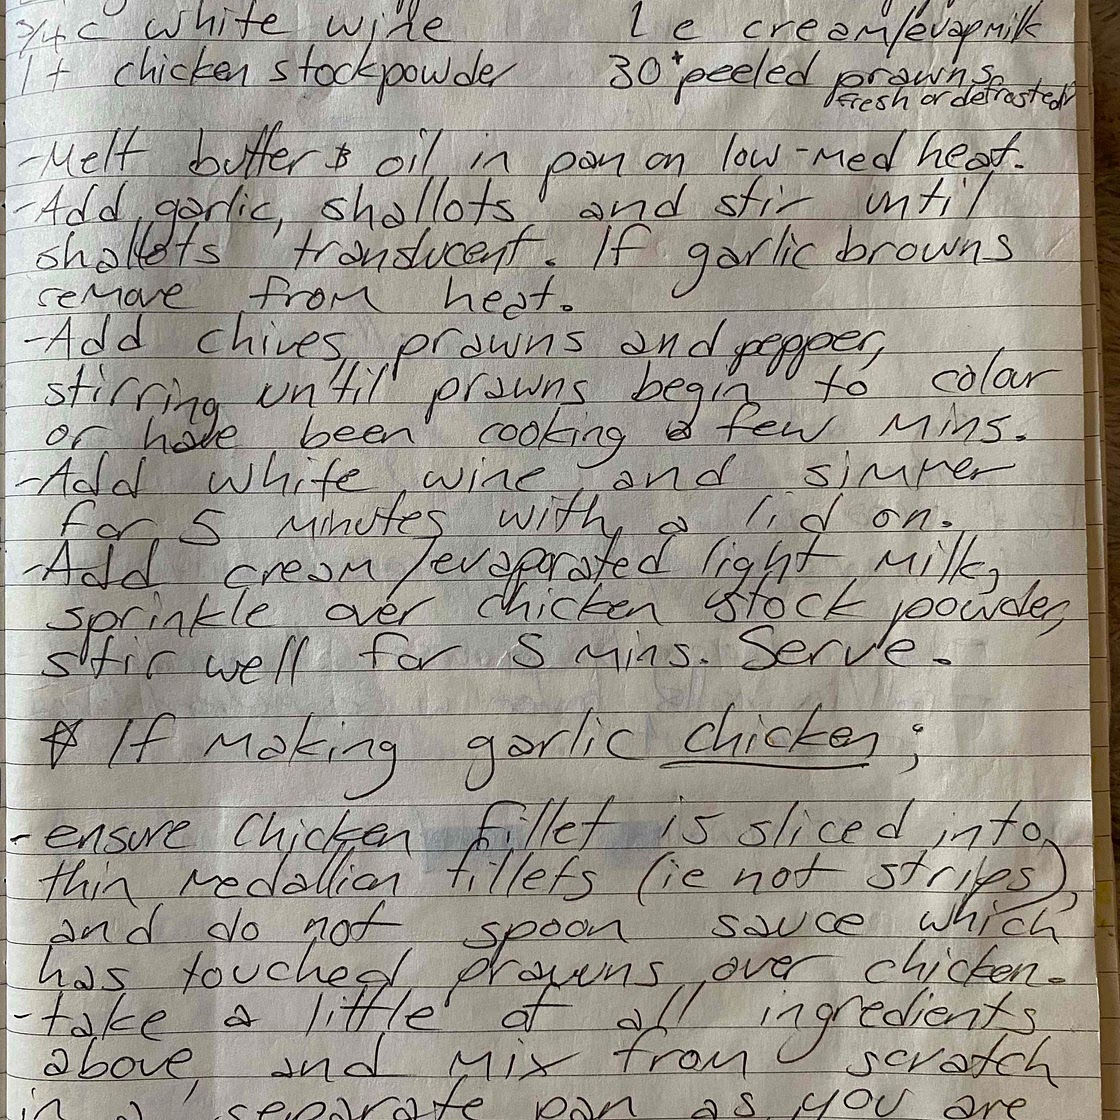 3/4 c white wine 1 c cream/evap milk
1 t chicken stock powder 30+ peeled prawns
fresh or defrosted
-Melt butter & oil in pan on low-med heat.
-Add garlic, shallots and stir until
shallots translucent. If garlic browns
remove from heat.
-Add chives, prawns and pepper,
stirring until prawns begin to colour
or have been cooking a few mins.
-Add white wine and simmer
for 5 minutes with a lid on.
-Add cream/evaporated light milk,
sprinkle over chicken stock powder,
stir well for 5 mins. Serve.
☆ If making garlic chicken;
-ensure chicken fillet is sliced into
thin medallion fillets (ie not strips),
and do not spoon sauce which
has touched prawns over chicken.
-take a little of all ingredients
above, and mix from scratch
in a separate pan as you are